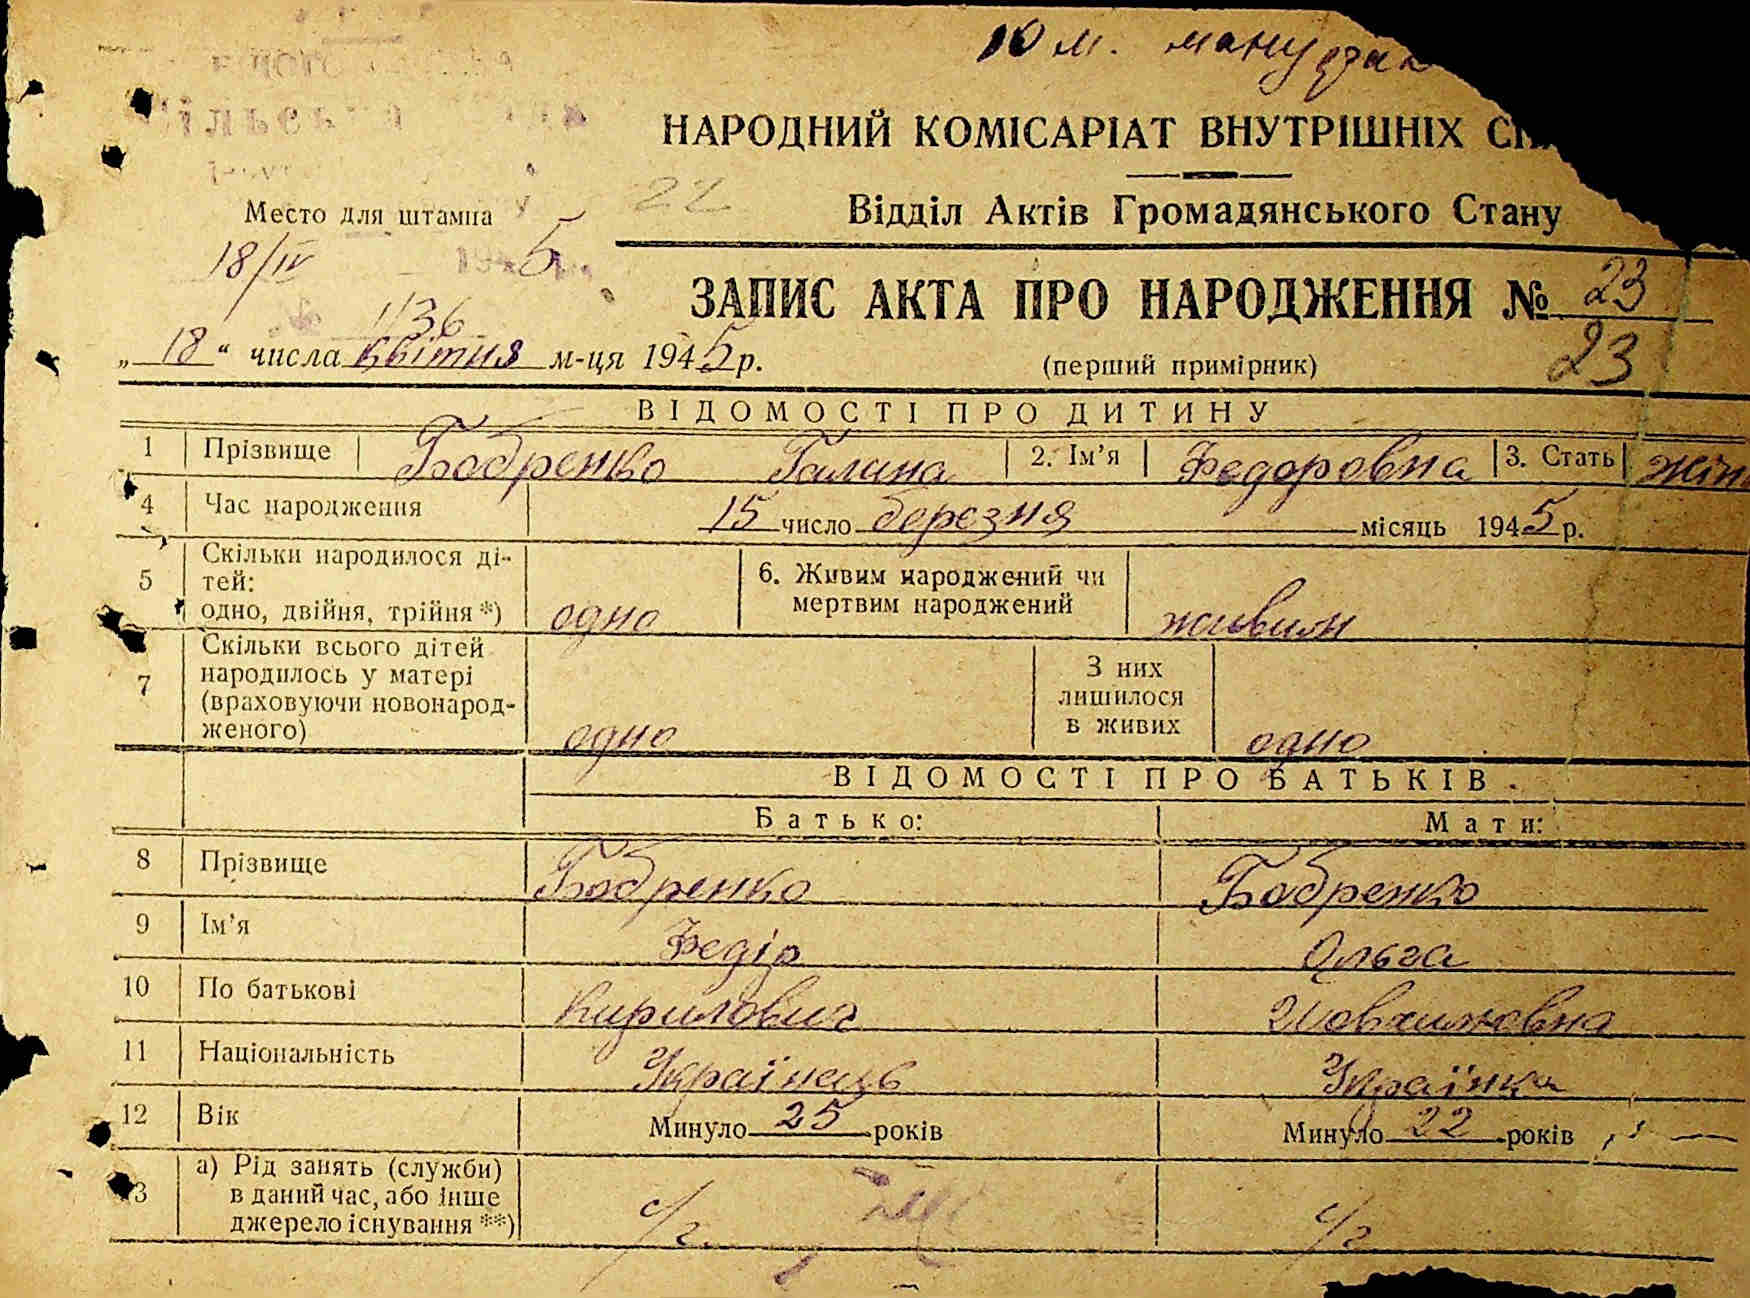 10 м.
НАРОДНИЙ КОМІСАРІАТ ВНУТРІШНІХ
22
Место для штампа
Відділ Актів Громадянського Стану
18/IV 5
ЗАПИС АКТА ПРО НАРОДЖЕННЯ № 23
1136
„ 18 “ числа квітня м-ця 1945 р.
(перший примірник) 23
ВІДОМОСТІ ПРО ДИТИНУ
1 Прізвище Бобренко Галина 2. Ім’я Федоровна 3. Стать
4 Час народження 15 число березня місяць 1945 р.
5 Скільки народилося ді-
тей:
одно, двійня, трійня *) одно
6. Живим народжений чи
мертвим народжений живим
7 Скільки всього дітей
народилось у матері
(враховуючи новонарод-
женого) одно
З них
лишилося
в живих одно
ВІДОМОСТІ ПРО БАТЬКІВ
Батько: Мати:
8 Прізвище Бобренко Бобренко
9 Ім’я Федір Ольга
10 По батькові Кирилович
11 Національність Українець Українка
12 Вік Минуло 25 років Минуло 22 років
13 а) Рід занять (служби)
в даний час, або інше
джерело існування **) с/г с/г